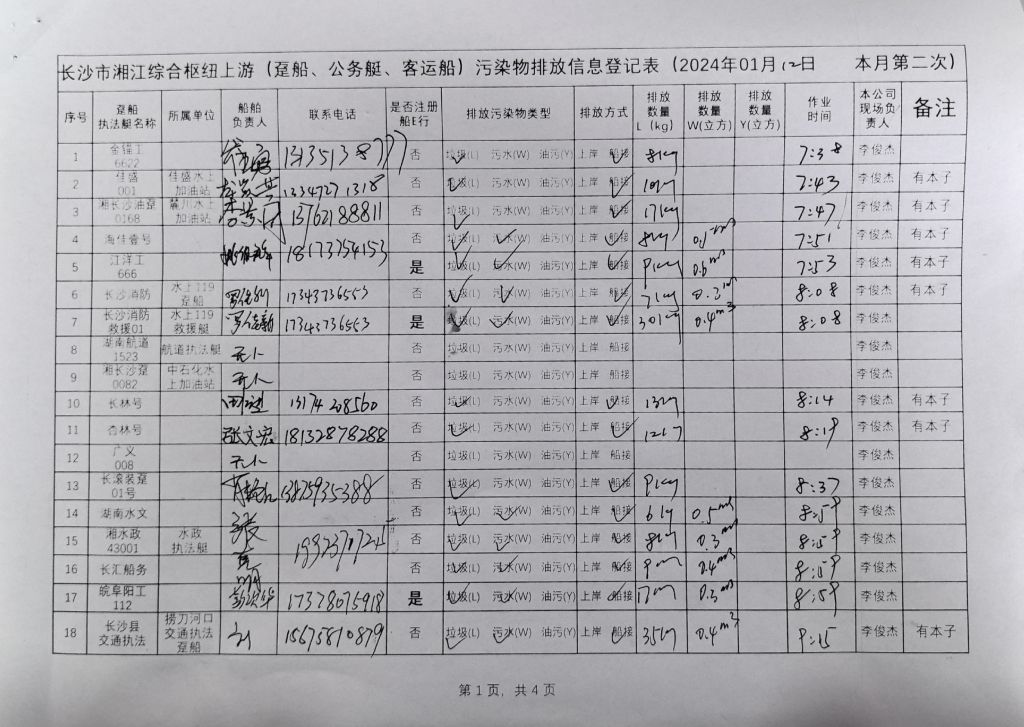 长沙市湘江综合枢纽上游（趸船、公务艇、客运船）污染物排放信息登记表（2024年01月12日 本月第二次）
序号 趸船执法艇名称 所属单位 船舶负责人 联系电话 是否注册船E行 排放污染物类型 排放方式 排放数量L（kg） 排放数量W(立方) 排放数量Y(立方) 作业时间 本公司现场负责人 备注
1 金锚工6622 否 垃圾(L) 污水(W) 油污(Y) 上岸 船接 8kg 7:38 李俊杰
2 佳盛001 佳盛水上加油站 否 垃圾(L) 污水(W) 油污(Y) 上岸 船接 10kg 7:43 李俊杰 有本子
3 湘长沙油趸0168 麓川水上加油站 13762188811 否 垃圾(L) 污水(W) 油污(Y) 上岸 船接 17kg 7:47 李俊杰 有本子
4 海佳壹号 否 垃圾(L) 污水(W) 油污(Y) 上岸 船接 8kg 7:51 李俊杰 有本子
5 江洋工666 18173754153 是 垃圾(L) 污水(W) 油污(Y) 上岸 船接 9kg 0.6m3 7:53 李俊杰 有本子
6 长沙消防 水上119趸船 17343736553 否 垃圾(L) 污水(W) 油污(Y) 上岸 船接 71kg 8:08 李俊杰 有本子
7 长沙消防救援01 水上119救援艇 17343736553 是 垃圾(L) 污水(W) 油污(Y) 上岸 船接 0.4m3 8:08 李俊杰
8 湖南航道1523 航道执法艇 无人 否 垃圾(L) 污水(W) 油污(Y) 上岸 船接 李俊杰
9 湘长沙趸0082 中石化水上加油站 无人 否 垃圾(L) 污水(W) 油污(Y) 上岸 船接 李俊杰
10 长林号 13174208560 否 垃圾(L) 污水(W) 油污(Y) 上岸 船接 13kg 8:14 李俊杰 有本子
11 杏林号 张文宏 18132878288 否 垃圾(L) 污水(W) 油污(Y) 上岸 船接 8:19 李俊杰 有本子
12 广义008 无人 否 垃圾(L) 污水(W) 油污(Y) 上岸 船接 李俊杰
13 长滚装趸01号 13875935388 否 垃圾(L) 污水(W) 油污(Y) 上岸 船接 9kg 8:37 李俊杰
14 湖南水文 否 垃圾(L) 污水(W) 油污(Y) 上岸 船接 6kg 0.5m3 8:59 李俊杰
15 湘水政43001 水政执法艇 否 垃圾(L) 污水(W) 油污(Y) 上岸 船接 8kg 0.3m3 8:59 李俊杰
16 长汇船务 否 垃圾(L) 污水(W) 油污(Y) 上岸 船接 9kg 0.4m3 8:59 李俊杰
17 皖阜阳工112 17378075918 是 垃圾(L) 污水(W) 油污(Y) 上岸 船接 0.3m3 8:59 李俊杰
18 长沙县交通执法 捞刀河口交通执法趸船 15675810879 否 垃圾(L) 污水(W) 油污(Y) 上岸 船接 35kg 0.4m3 9:15 李俊杰 有本子
第 1 页，共 4 页